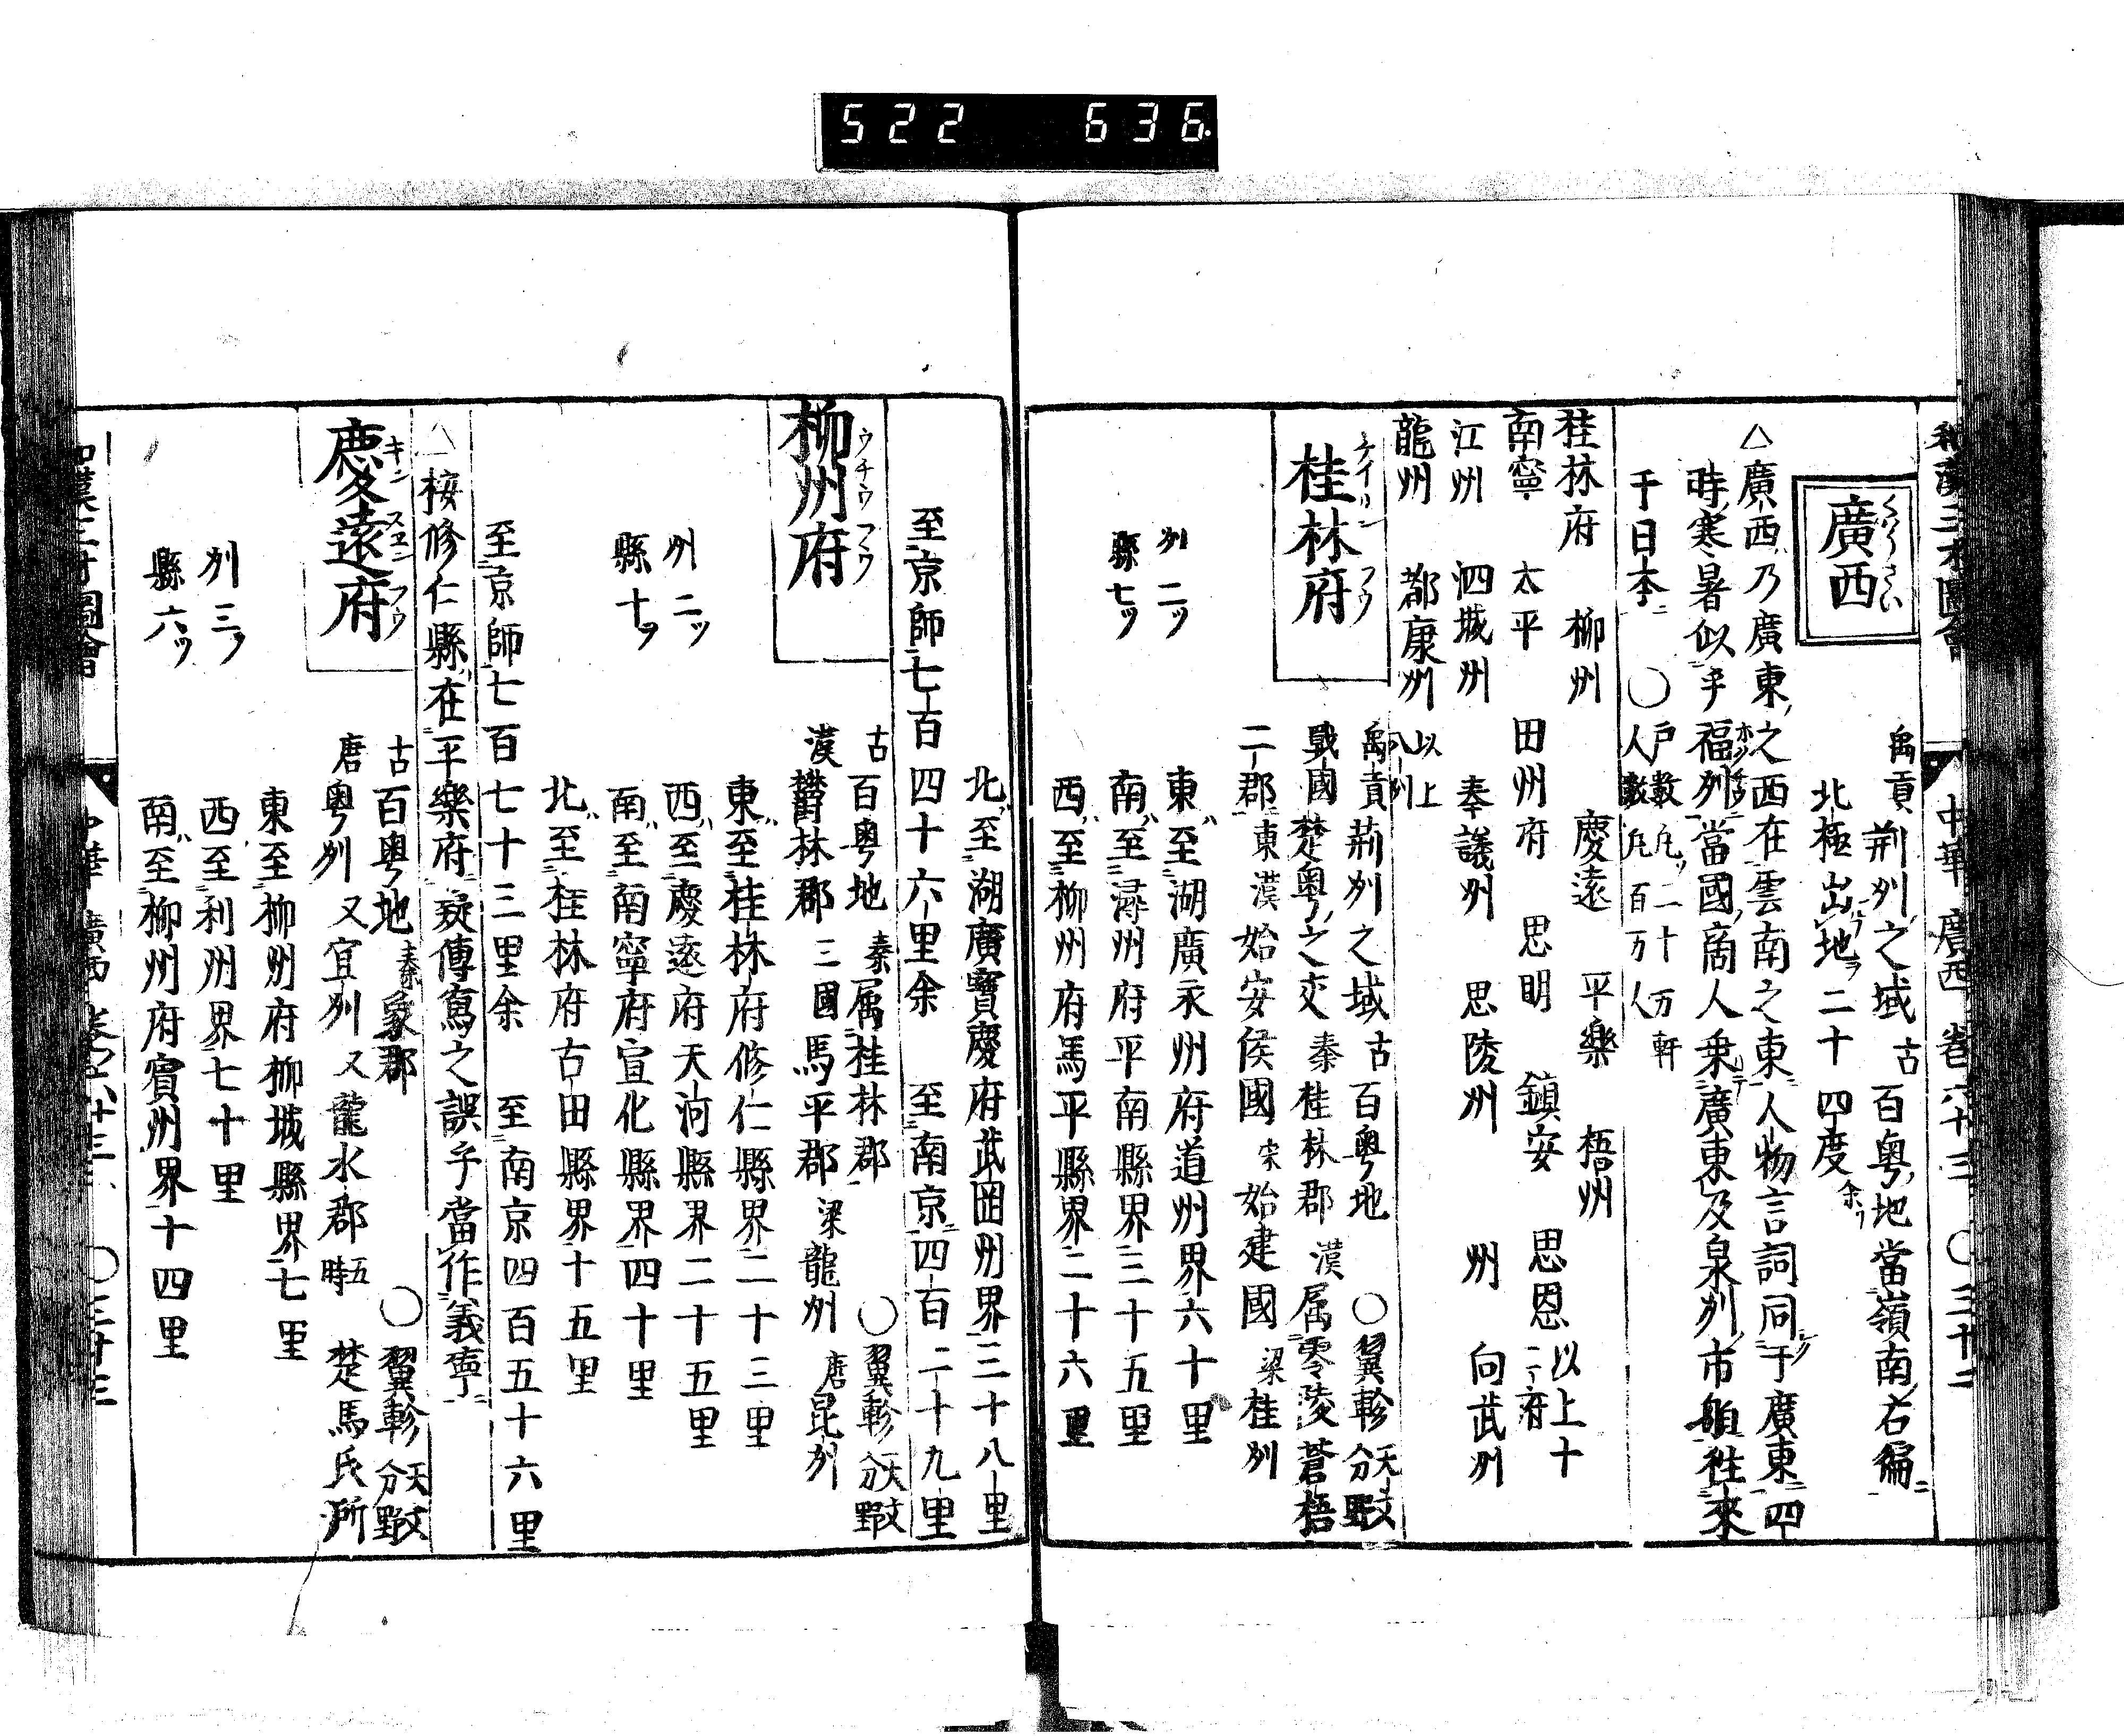 522 636.
和漢三才圖會 中華 廣西 卷六十三 〇三十二
廣西
くワうさい
禹貢荊州之域古百粤地當嶺南右偏
北極出地二十四度余
△廣西乃廣東之西在雲南之東人物言詞同于廣東四
時寒暑似乎福州當國商人乗廣東及泉州市舶往來
于日本 〇戸數凡二十万軒
人數凡百万人
桂林府 柳州 慶遠 平樂 梧州
南寧 太平 田州府 思明 鎮安 思恩 以上十一府
江州 泗城州 奉議州 思陵州 州 向武州
龍州 都康州 以上八州
桂林府
ケイリン フウ
禹貢荊州之域古百粤地 〇翼軫天文分野
戰國楚粤之交秦桂林郡漢属零陵蒼梧
二郡東漢始安侯國宋始建國梁桂州
州二ツ
縣七ツ
東至湖廣永州府道州界六十里
南至潯州府平南縣界三十五里
西至柳州府馬平縣界二十六里
北至湖廣寶慶府武岡州界三十八里
至京師七百四十六里余 至南京四百二十九里
柳州府
ウチウ フウ
古百粤地秦属桂林郡 〇翼軫天文分野
漢欝林郡三國馬平郡梁龍州唐昆州
州二ツ
縣十ヲ
東至桂林府修仁縣界二十三里
西至慶遠府天河縣界二十五里
南至南寧府宣化縣界四十里
北至桂林府古田縣界十五里
至京師七百七十三里余 至南京四百五十六里
△桉修仁縣在平樂府疑傳寫之誤乎當作義寧
慶遠府
キン スエン フウ
古百粤地秦象郡 〇翼軫天文分野
唐粤州又宜州又龍水郡五時楚馬氏所
州三ツ
縣六ツ
東至柳州府柳城縣界七里
西至利州界七十里
南至柳州府賓州界十四里
和漢三才圖會 中華 廣西 卷之六十三 〇三十三